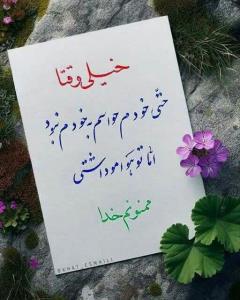 خیلی وقتا
حتّی خودم حواسم به خودم نبود
امّا تو هوامو داشتی
ممنونم خدا